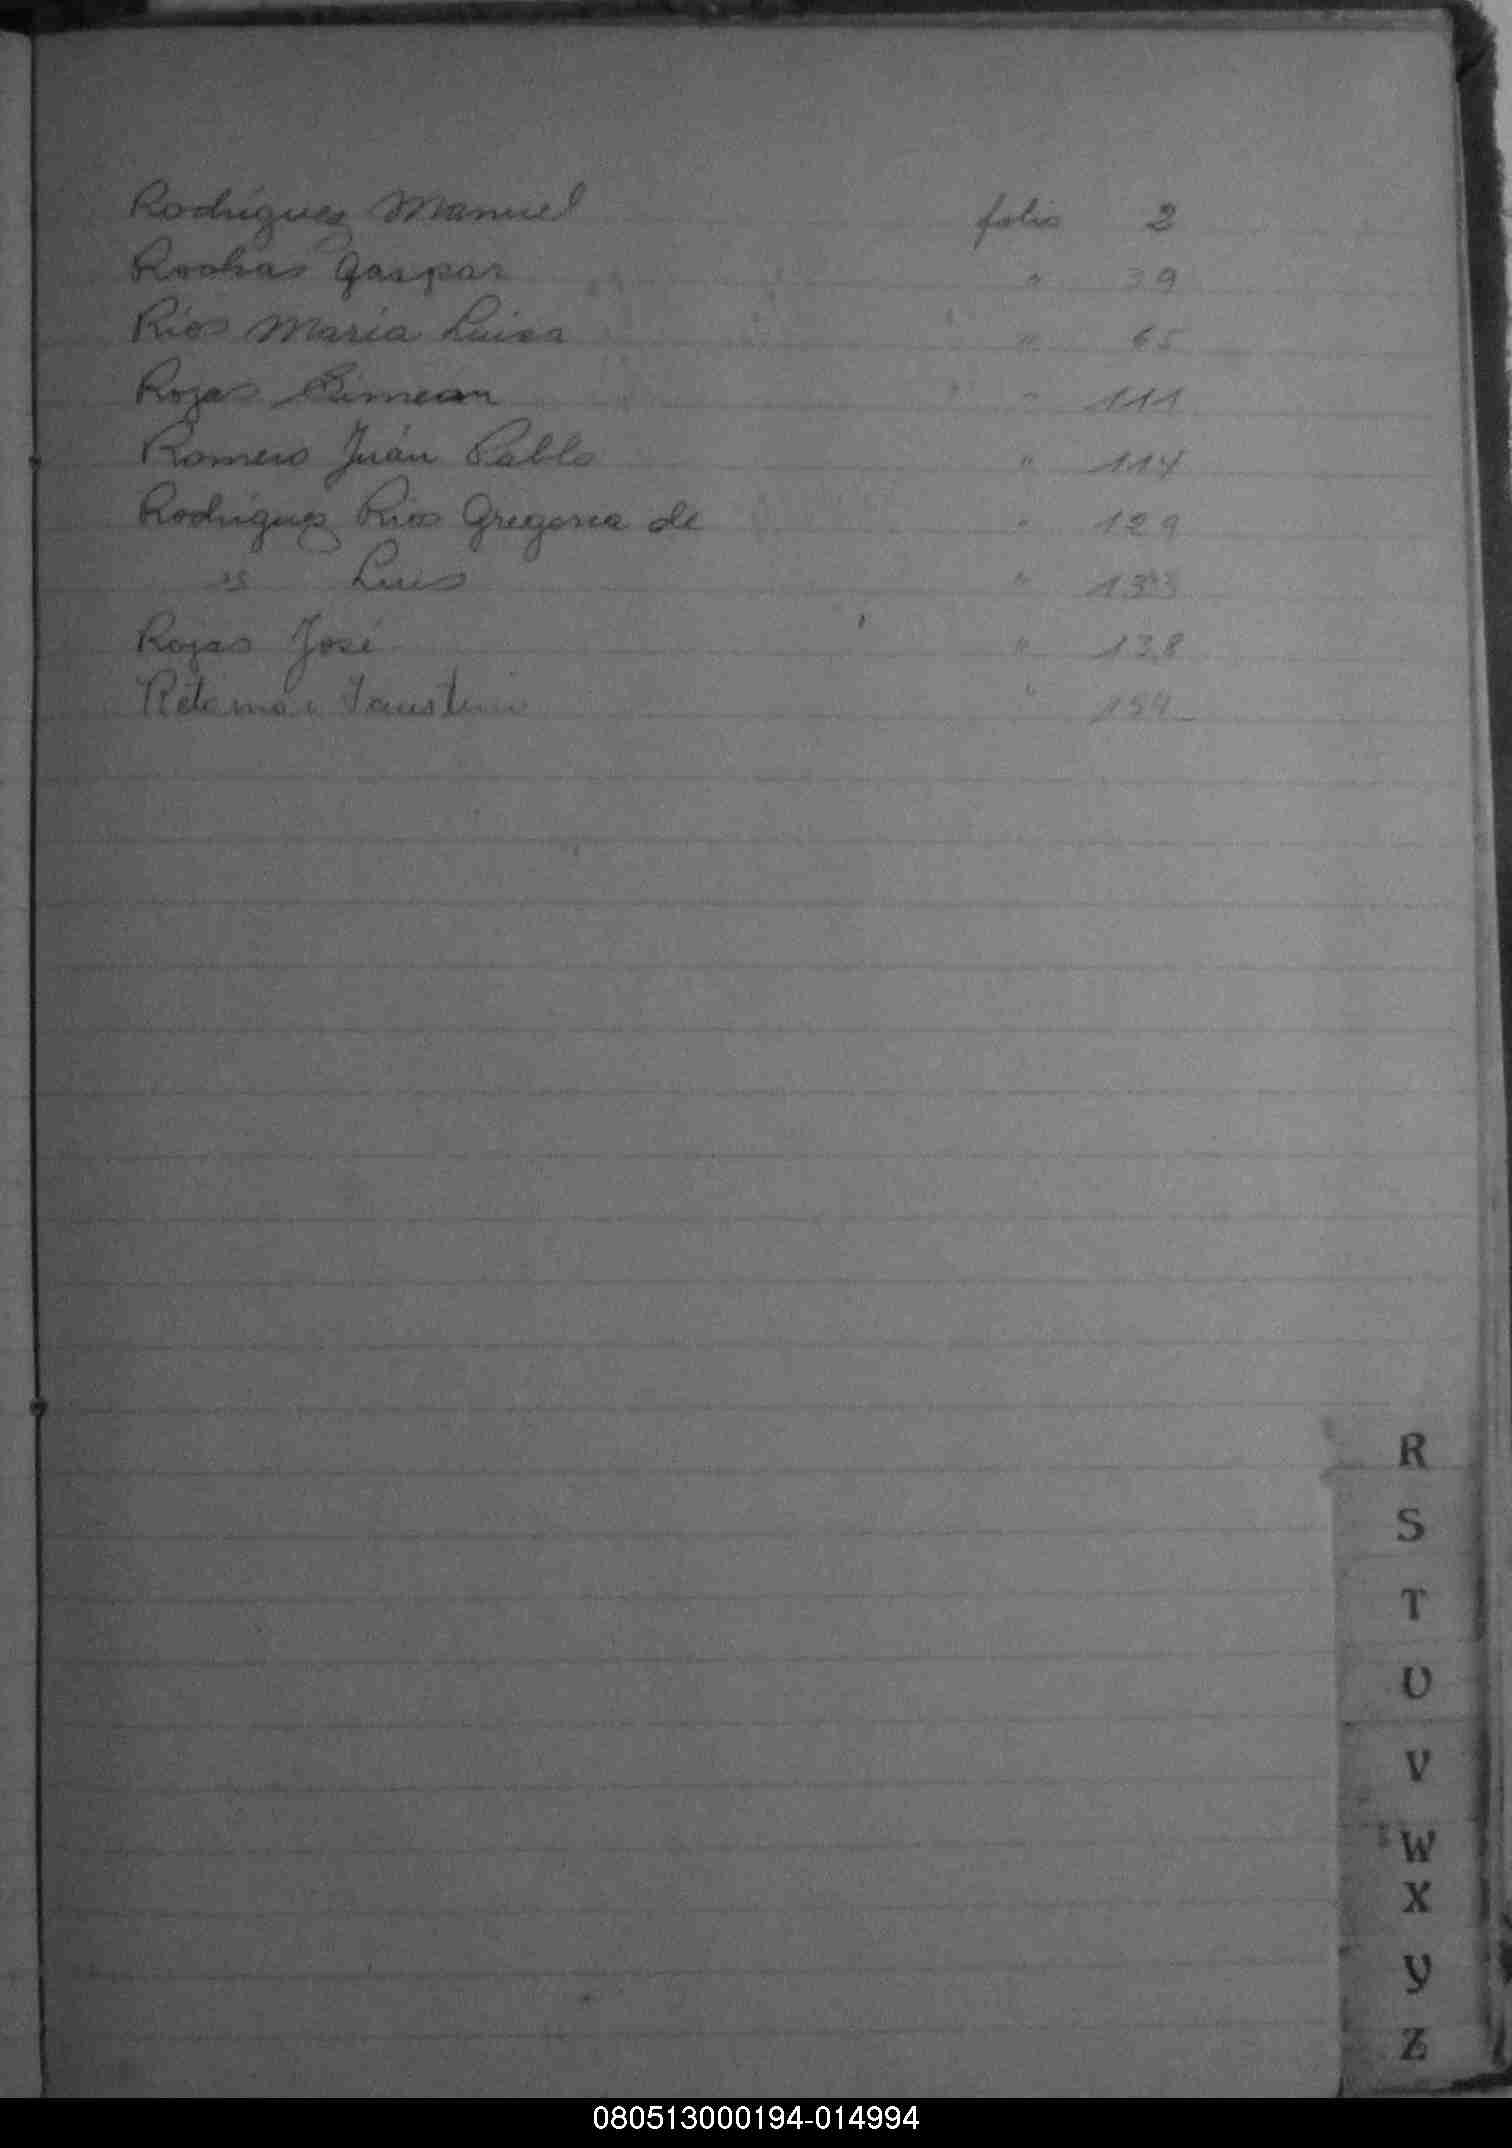 Rodríguez Manuel folio 2
Rochas Gaspar " 39
Ríos María Luisa " 65
Rojas Simeón " 111
Romero Juán Pablo " 114
Rodríguez Ríos Gregoria de " 129
" Luis " 133
Rojas José " 138
Retamar Faustino " 154
R
S
T
U
V
W
X
Y
Z
080513000194-014994